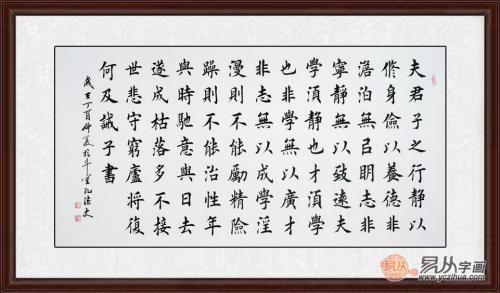 夫君子之行靜以
脩身儉以養德非
澹泊無以明志非
寧靜無以致遠夫
學須靜也才須學
也非學無以廣才
非志無以成學淫
漫則不能勵精險
躁則不能治性年
與時馳意與日去
遂成枯落多不接
世悲守窮廬將復
何及誡子書
歲在丁酉仲夏於斗室孔
易从
易从字画
www.yczihua.com